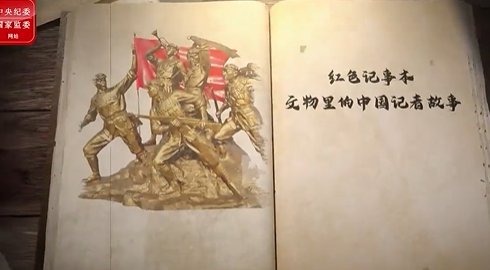 中央纪委
国家监委
网站
红色记事本
文物里的中国记者故事